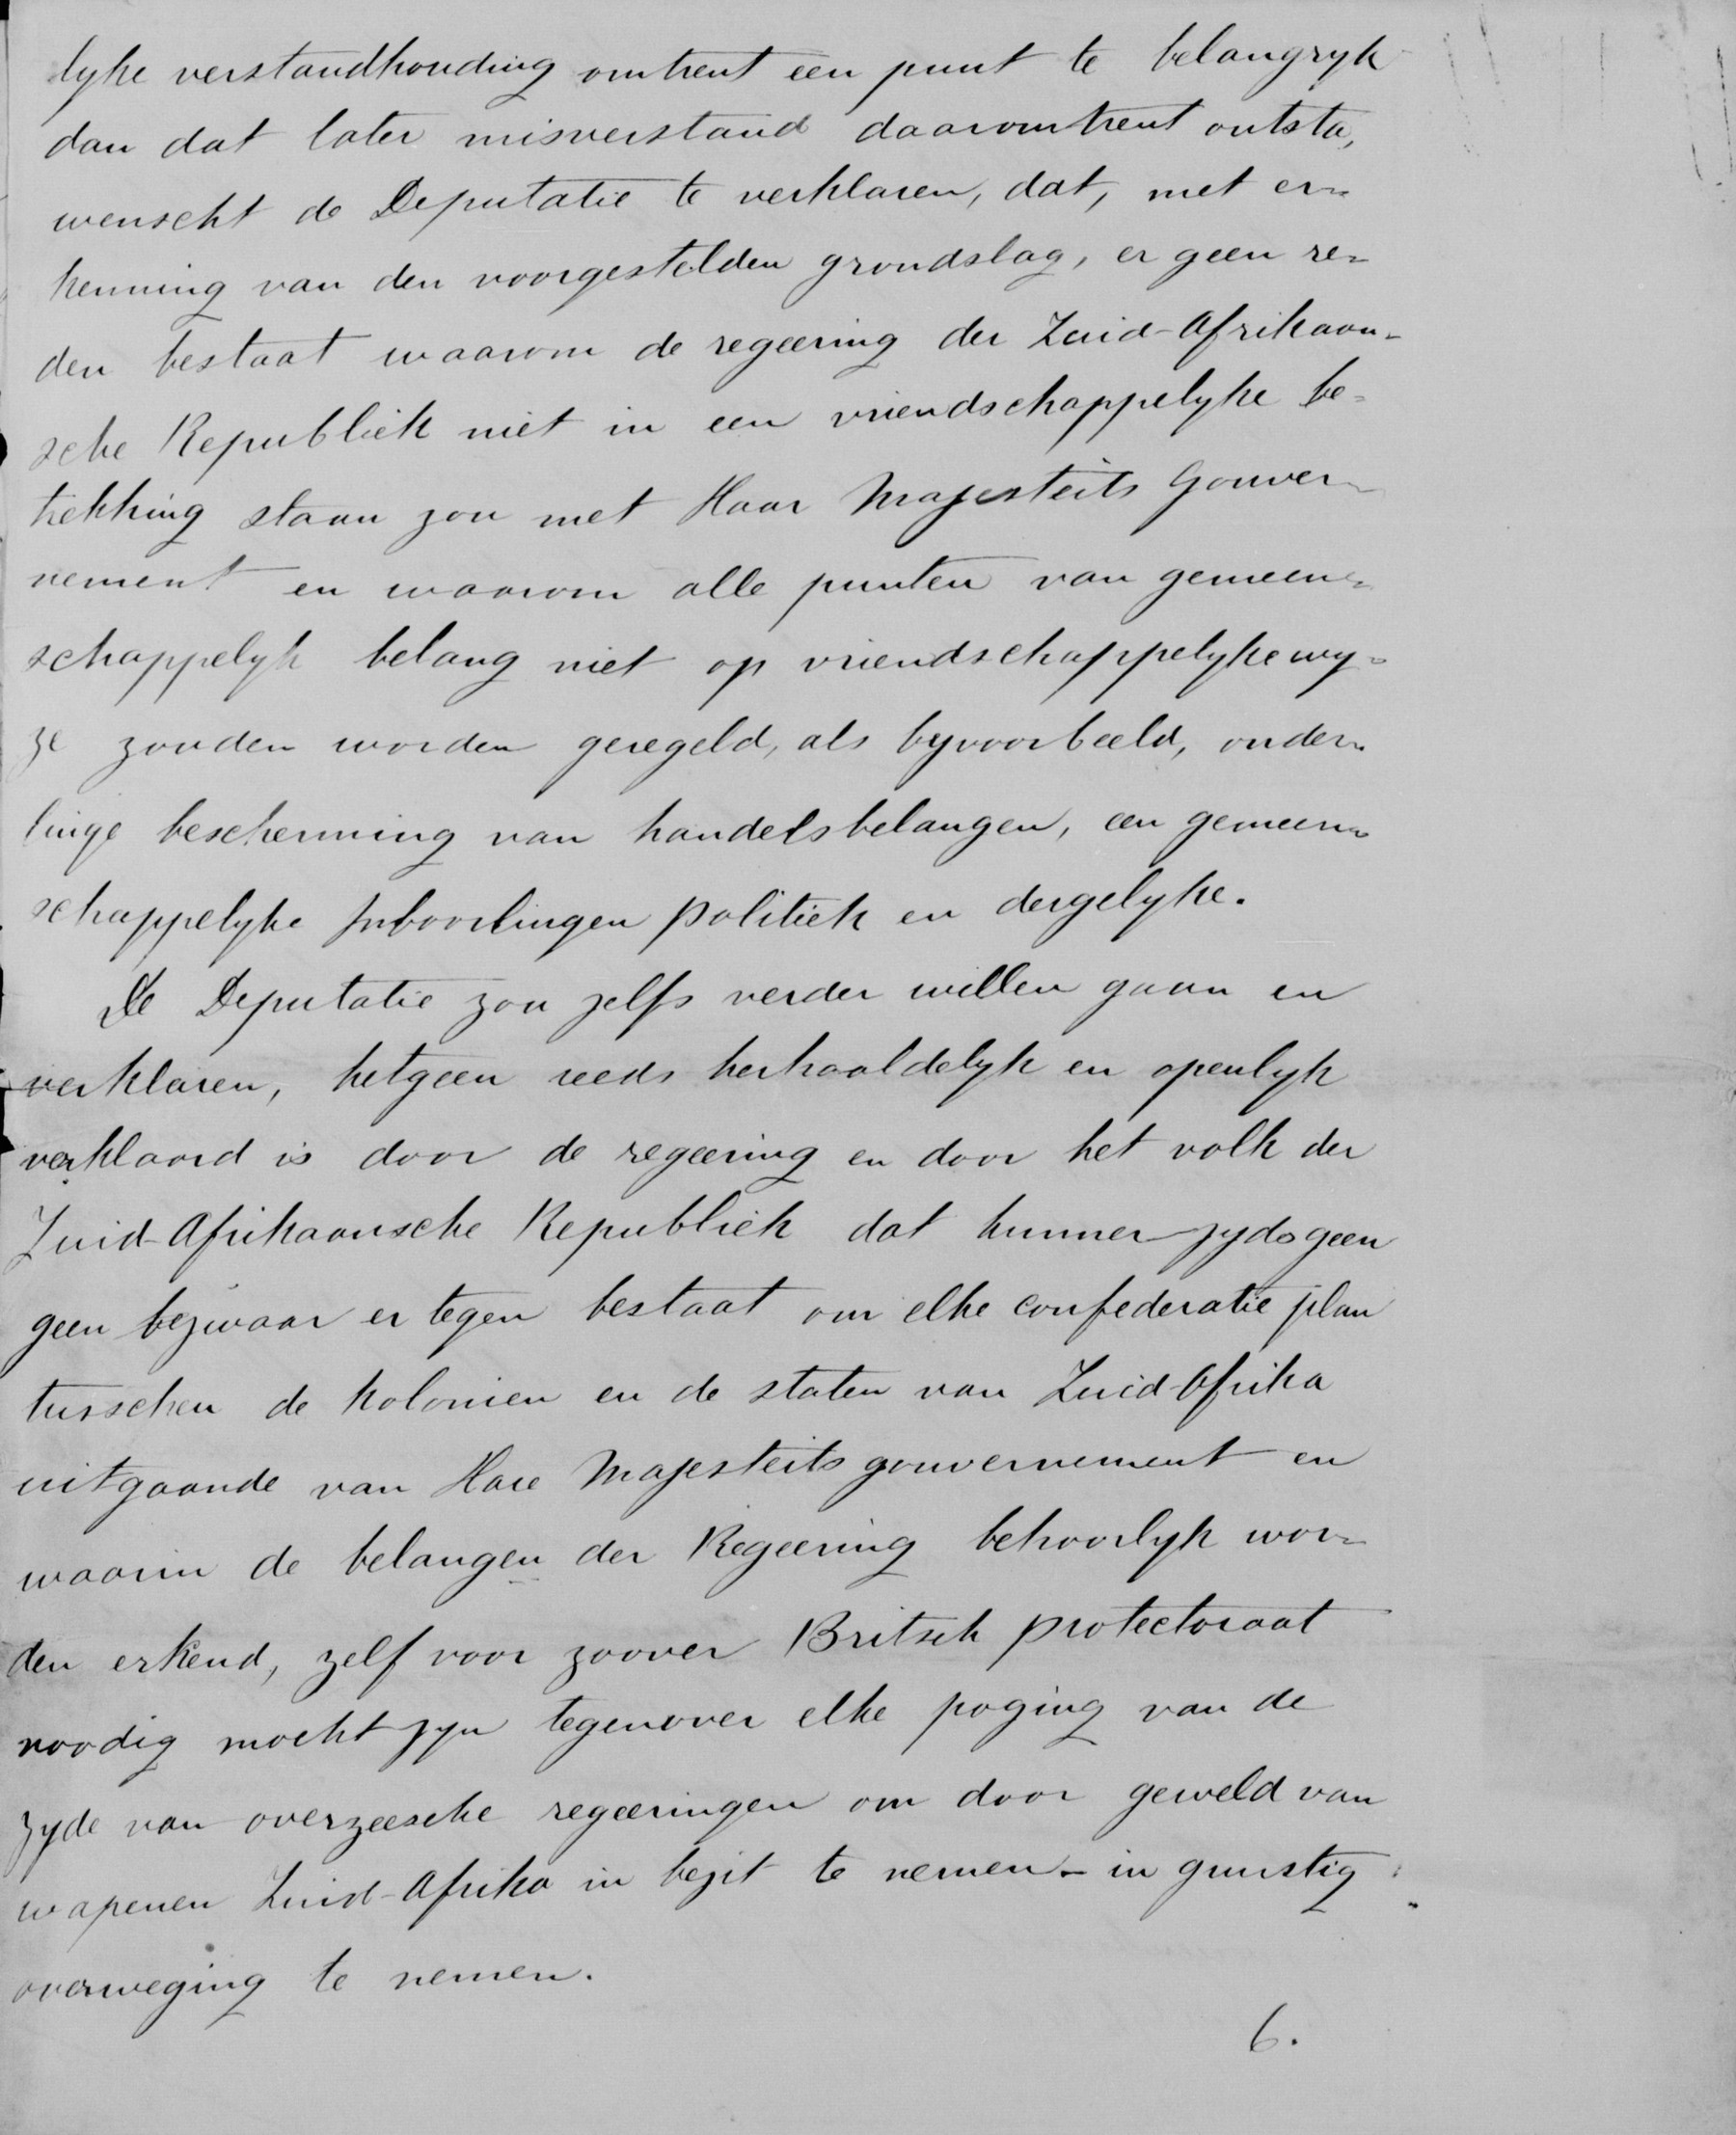 lyke verstandhouding omtrent een punt te belangryk
dan dat later misverstand daaromtrent ontsta,
wenscht de Deputatie te verklaren, dat, met er=
kenning van den voorgestelden grondslag, er geen re=
den bestaat waarom de regeering der Zuid-Afrikaan=
sche Republiek niet in een vriendschappelyke be=
trekking staan zou met Haar Majesteits Gouver=
nement en waarom alle punten van gemeen=
schappelyk belang niet op vriendschappelyke wy=
ze zouden worden geregeld, als byvoorbeeld, onder=
linge bescherming van handelsbelangen, een gemeen=
schappelyke Inboorlingen politiek en dergelyke.
De Deputatie zou zelfs verder willen gaan en
verklaren, hetgeen reeds herhaaldelyk en openlyk
verklaard is door de regeering en door het volk der
Zuid-Afrikaansche Republiek dat hunner-zyds geen
geen bezwaar er tegen bestaat om elke confederatie plan
tusschen de kolonien en de staten van Zuid-Afrika
uitgaande van Hare Majesteits gouvernement en
waarin de belangen der Regeering behoorlyk wor=
den erkend, zelf voor zoover Britsch protectoraat
noodig mocht zyn tegenover elke poging van de
zyde van overzeesche regeeringen om door geweld van
wapenen Zuid-Afrika in bezit te nemen - in gunstig
overweging te nemen.
6.